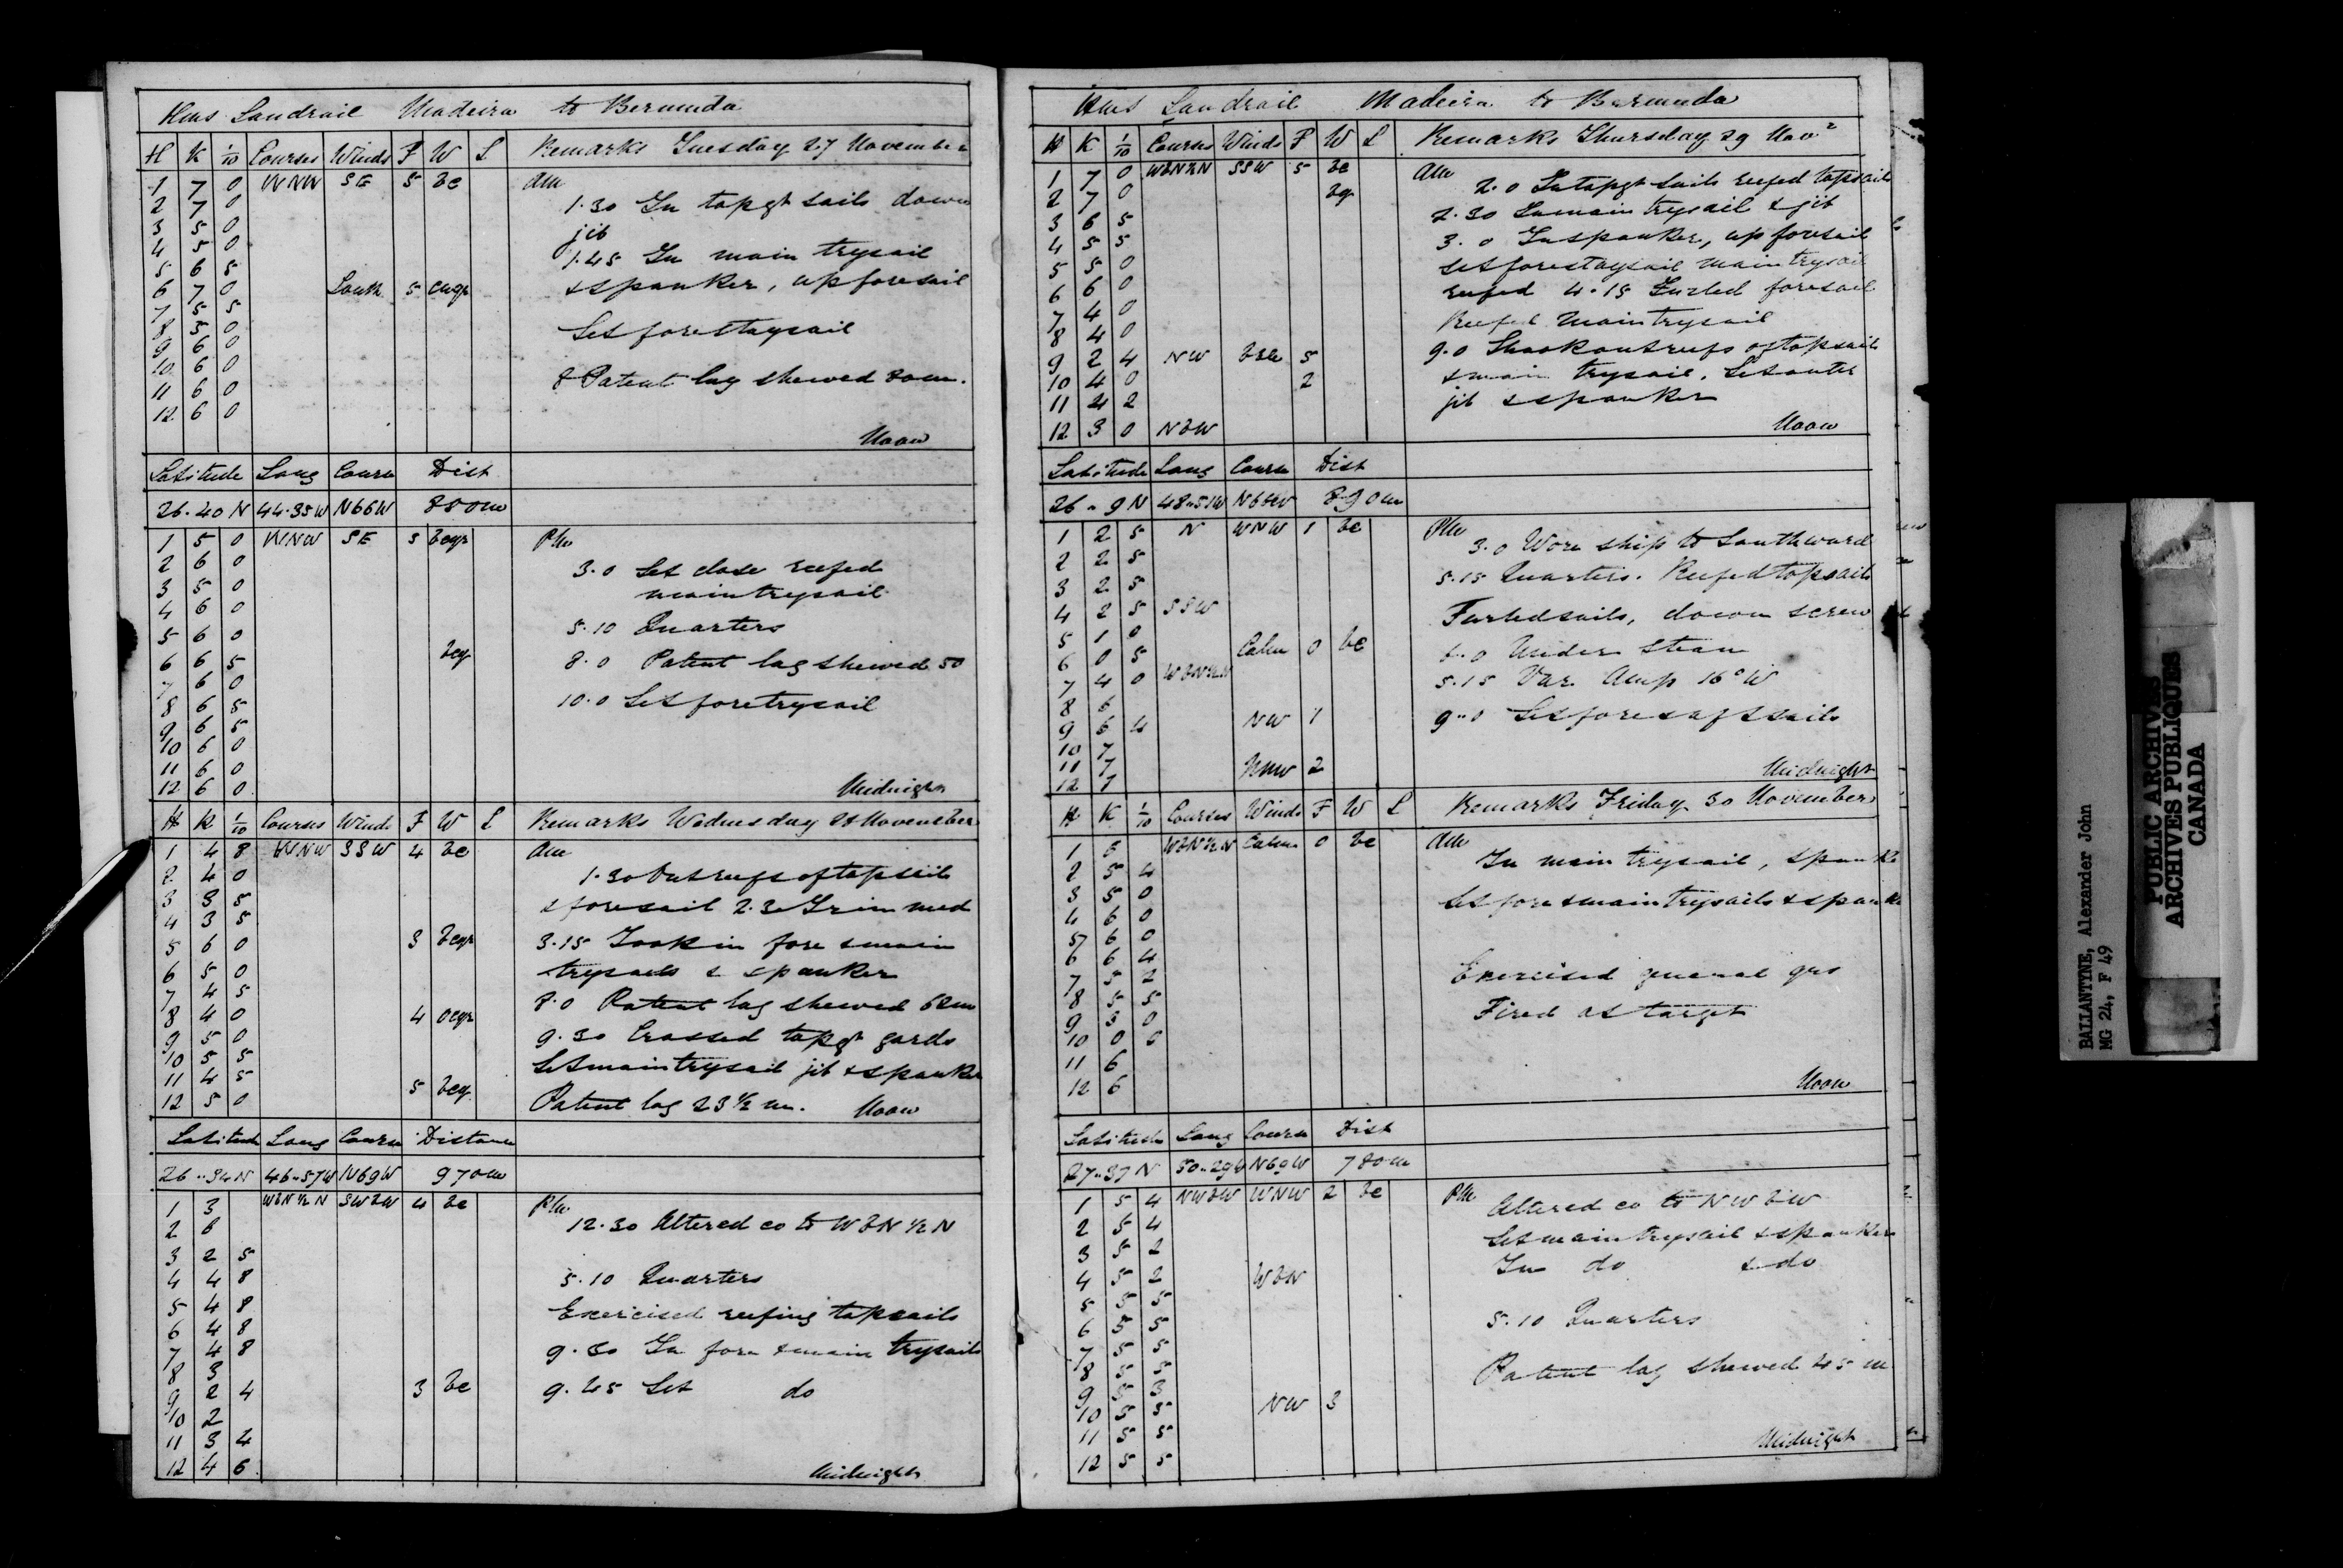 Hms Landrail Madeira to Bermuda
H K 1/10 Courses Winds F W L Remarks Tuesday 27 November
1 7 0 WNW SE 5 bc Am
2 7 0 1.30 In topgt sails down
3 5 0 jib
4 5 0 1.45 In main trysail
5 6 5 & spanker, up foresail
6 7 0 South 5 cuqr
7 5 5 Set forestaysail
8 5 0
9 6 0 8 Patent log shewed 80m.
10 6 0
11 6 0
12 6 0 Noon
Latitude Long Course Dist
26.40 N 44.35 W N66W 880m
1 5 0 WNW SE 5 bcqr Pm
2 6 0 3.0 Set close reefed
3 5 0 maintrysail
4 6 0 5.10 Quarters
5 6 0 bcq 8.0 Patent log shewed 50
6 6 5 10.0 Set foretrysail
7 6 0
8 6 5
9 6 5
10 6 0
11 6 0
12 6 0 Midnight
H K 1/10 Courses Winds F W L Remarks Wednesday 28 November
1 4 8 WNW SSW 4 bc Am
2 4 0 1.30 Out reefs of topsails
3 3 5 & foresail 2.30 Trimmed
4 3 5
5 6 0 3 bcqr 3.15 Took in fore & main
6 5 0 trysails & spanker
7 4 5 8.0 Patent log shewed 62m
8 4 0 4 ocqr 9.30 Crossed topgt yards
9 5 0 Set maintrysail jib & spanker
10 5 5
11 4 5 5 bcq
12 5 0 Patent log 23 1/2 m. Noon
Latitude Long Course Distance
26..34N 46..57W N69W 970m
1 3 WbN 1/2 N SWbW 4 bc Pm
2 8 12.30 Altered co to WbN 1/2 N
3 2 5
4 4 8 5.10 Quarters
5 4 8 Exercised reefing topsails
6 4 8
7 4 8 9.30 In fore & main trysails
8 3
9 2 4 3 bc 9.45 Set do
10 2
11 3 4
12 4 6 Midnight
Hms Landrail Madeira to Bermuda
H K 1/10 Courses Winds F W L Remarks Thursday 29 Novr
1 7 0 WbN1/2N SSW 5 bc Am
2 7 0 bcqr 2.0 In topgt sails reefed topsails
3 6 5 2.30 In main trysail & jib
4 5 5 3.0 In spanker, up foresail
5 5 0 set forestaysail main trysail
6 6 0 reefed 4.15 Furled foresail
7 4 0 Reefed main trysail
8 4 0
9 2 4 NW 5 9.0 Shook out reefs of topsails
10 4 0 2 & main trysail. Set outer
11 4 2 jib & spanker
12 3 0 NbW Noon
Latitude Long Course Dist
26..9N 48..51W 890m
1 2 5 N WNW 1 bc Pm
2 2 5 3.0 Wore ship to Southward
3 2 5 5.15 Quarters. Reefed topsails
4 2 5 SSW Furled sails, down screw
5 1 0 Calm 0 bc
6 0 5 6.0 Under steam
7 4 0 WbN1/2N 5.15 Var Amp 16° W
8 6
9 6 4 NW 1 9..0 Set fore & aft sails
10 7
11 7 NNW 2
12 7 Midnight
H K 1/10 Courses Winds F W L Remarks Friday 30 November
1 5 WbN1/2N Calm 0 bc Am
2 5 4 In main trysail, spanker
3 5 0 Set fore & main trysails & spanker
4 6 0
5 6 0
6 6 4 Exercised general qrs
7 5 2
8 5 5 Fired at target
9 3 0
10 0 6
11 6
12 6 Noon
Latitude Long Course Dist
27..37 N 50..29W N69W 780m
1 5 4 NWbW WNW 2 bc Pm
2 5 4 Altered co to NWbW
3 5 2 Set maintrysail & spanker
4 5 2 WbN In do & do
5 5 5
6 5 5 5.10 Quarters
7 5 5
8 5 5 Patent log shewed 45 m
9 5 3
10 5 5 NW 3
11 5 5
12 5 5 Midnight
BALLANTYNE, Alexander John
MG 24, F 49
PUBLIC ARCHIVES
ARCHIVES PUBLIQUES
CANADA